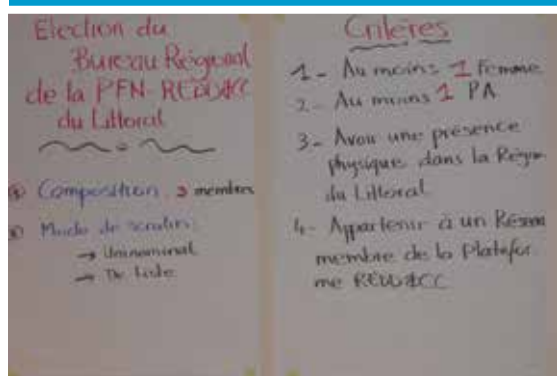 Election du
Bureau Régional
de la PFN-REDD&CC
du Littoral
Composition. 3 membres
Mode de scrutin:
→ Uninominal
→ De liste
Critères
1- Au moins 1 Femme
2- Au moins 1 PA
3- Avoir une présence
physique dans la Région
du Littoral
4- Appartenir à un Réseau
membre de la Platefor
me REDD&CC